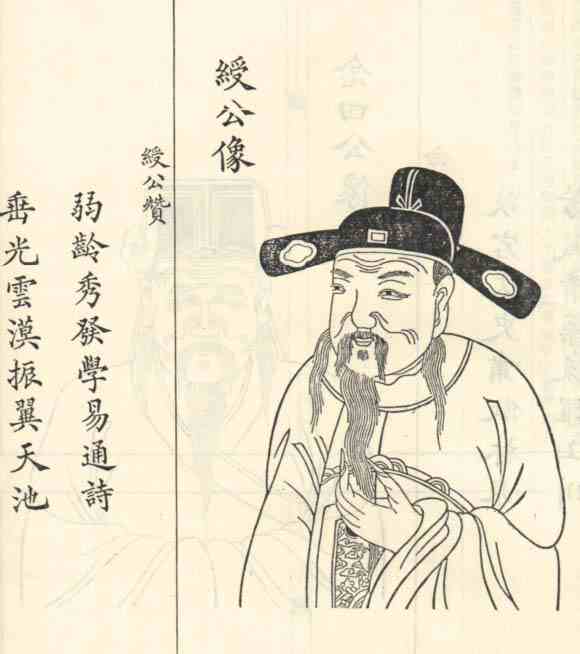 綬公像
綬公贊
弱齡秀發學易通詩
垂光雲漢振翼天池